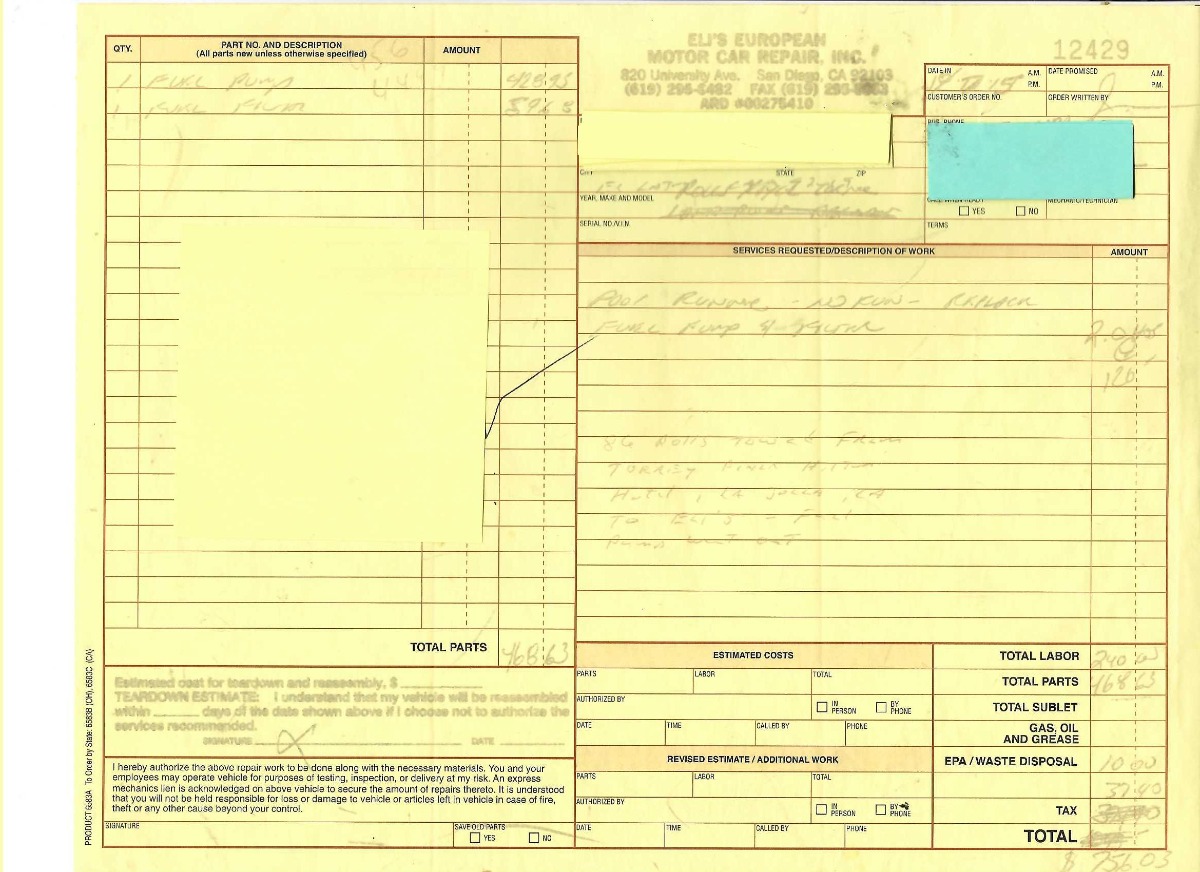 ELI'S EUROPEAN
MOTOR CAR REPAIR, INC.
820 University Ave. San Diego, CA 92103
(619) 296-5482 FAX (619)
ARD #00275410
12429
DATE IN A.M. P.M.
DATE PROMISED A.M. P.M.
CUSTOMER'S ORDER NO.
ORDER WRITTEN BY
CITY STATE ZIP
YEAR, MAKE AND MODEL
SERIAL NO./V.I.N.
YES NO
MECHANIC/TECHNICIAN
TERMS
QTY. PART NO. AND DESCRIPTION AMOUNT
(All parts new unless otherwise specified)
1 FUEL PUMP 428 95
1 FUEL FILTER
TOTAL PARTS 468 63
SERVICES REQUESTED/DESCRIPTION OF WORK AMOUNT
POOR RUNNING - NO RUN - REPLACE
FUEL PUMP & FILTER
120
86 ROLLS TOWED FROM
TORREY PINES HILTON
HOTEL, LA JOLLA, CA
TO ELI'S - FUEL
PUMP WENT OUT
Estimated cost for teardown and reassembly, $
TEARDOWN ESTIMATE: I understand that my vehicle will be reassembled
within days of the date shown above if I choose not to authorize the
services recommended.
SIGNATURE X DATE
I hereby authorize the above repair work to be done along with the necessary materials. You and your
employees may operate vehicle for purposes of testing, inspection, or delivery at my risk. An express
mechanics lien is acknowledged on above vehicle to secure the amount of repairs thereto. It is understood
that you will not be held responsible for loss or damage to vehicle or articles left in vehicle in case of fire,
theft or any other cause beyond your control.
SIGNATURE
SAVE OLD PARTS
YES NO
ESTIMATED COSTS
PARTS LABOR TOTAL
AUTHORIZED BY IN PERSON BY PHONE
DATE TIME CALLED BY PHONE
REVISED ESTIMATE / ADDITIONAL WORK
PARTS LABOR TOTAL
AUTHORIZED BY IN PERSON BY PHONE
DATE TIME CALLED BY PHONE
TOTAL LABOR 240 00
TOTAL PARTS 468 63
TOTAL SUBLET
GAS, OIL
AND GREASE
EPA / WASTE DISPOSAL 10 00
37.40
TAX
TOTAL
$ 756.03
PRODUCT 6583A To Order by State: 6583B (OH), 6583C (CA)